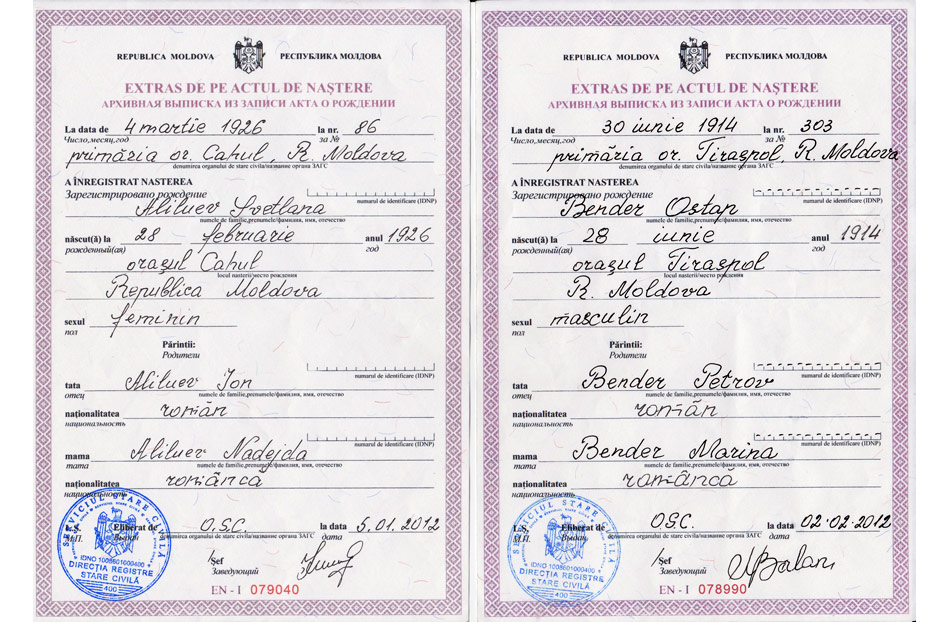 REPUBLICA MOLDOVA РЕСПУБЛИКА МОЛДОВА
EXTRAS DE PE ACTUL DE NAȘTERE
АРХИВНАЯ ВЫПИСКА ИЗ ЗАПИСИ АКТА О РОЖДЕНИИ
La data de 4 martie 1926 la nr. 86
Число,месяц,год за №
primăria or. Cahul, R. Moldova
denumirea organului de stare civila/название органа ЗАГС
A ÎNREGISTRAT NASTEREA
Зарегистрировано рождение
numarul de identificare (IDNP)
Aliluev Svetlana
numele de familie,prenumele/фамилия, имя, отчество
născut(ă) la 28 februarie anul 1926
рожденный(ая) год
orașul Cahul
locul nasterii/место рождения
Republica Moldova
sexul feminin
пол
Părinții:
Родители
numarul de identificare (IDNP)
tata Aliluev Ion
отец numele de familie,prenumele/фамилия, имя, отчество
naționalitatea român
национальность
numarul de identificare (IDNP)
mama Aliluev Nadejda
мата numele de familie,prenumele/фамилия, имя, отчество
naționalitatea româncă
национальность
L.Ș. Eliberat de O.S.C. la data 5.01.2012
М.П. Выдан denumirea organului de stare civila/название органа ЗАГС дата
/Șef
Заведующий
EN - I 079040
SERVICIUL STARE CIVILĂ
IDNO 1006601000400
DIRECȚIA REGISTRE
STARE CIVILĂ
400
REPUBLICA MOLDOVA РЕСПУБЛИКА МОЛДОВА
EXTRAS DE PE ACTUL DE NAȘTERE
АРХИВНАЯ ВЫПИСКА ИЗ ЗАПИСИ АКТА О РОЖДЕНИИ
La data de 30 iunie 1914 la nr. 303
Число,месяц,год за №
primăria or. Tiraspol, R. Moldova
denumirea organului de stare civila/название органа ЗАГС
A ÎNREGISTRAT NASTEREA
Зарегистрировано рождение
numarul de identificare (IDNP)
Bender Ostap
numele de familie,prenumele/фамилия, имя, отчество
născut(ă) la 28 iunie anul 1914
рожденный(ая) год
orașul Tiraspol
locul nasterii/место рождения
R. Moldova
sexul masculin
пол
Părinții:
Родители
numarul de identificare (IDNP)
tata Bender Petrov
отец numele de familie,prenumele/фамилия, имя, отчество
naționalitatea român
национальность
numarul de identificare (IDNP)
mama Bender Marina
мата numele de familie,prenumele/фамилия, имя, отчество
naționalitatea româncă
национальность
L.Ș. Eliberat de O.S.C. la data 02.02.2012
М.П. Выдан denumirea organului de stare civila/название органа ЗАГС дата
/Șef
Заведующий
EN - I 078990
SERVICIUL STARE CIVILĂ
IDNO 1006601000400
DIRECȚIA REGISTRE
STARE CIVILĂ
400